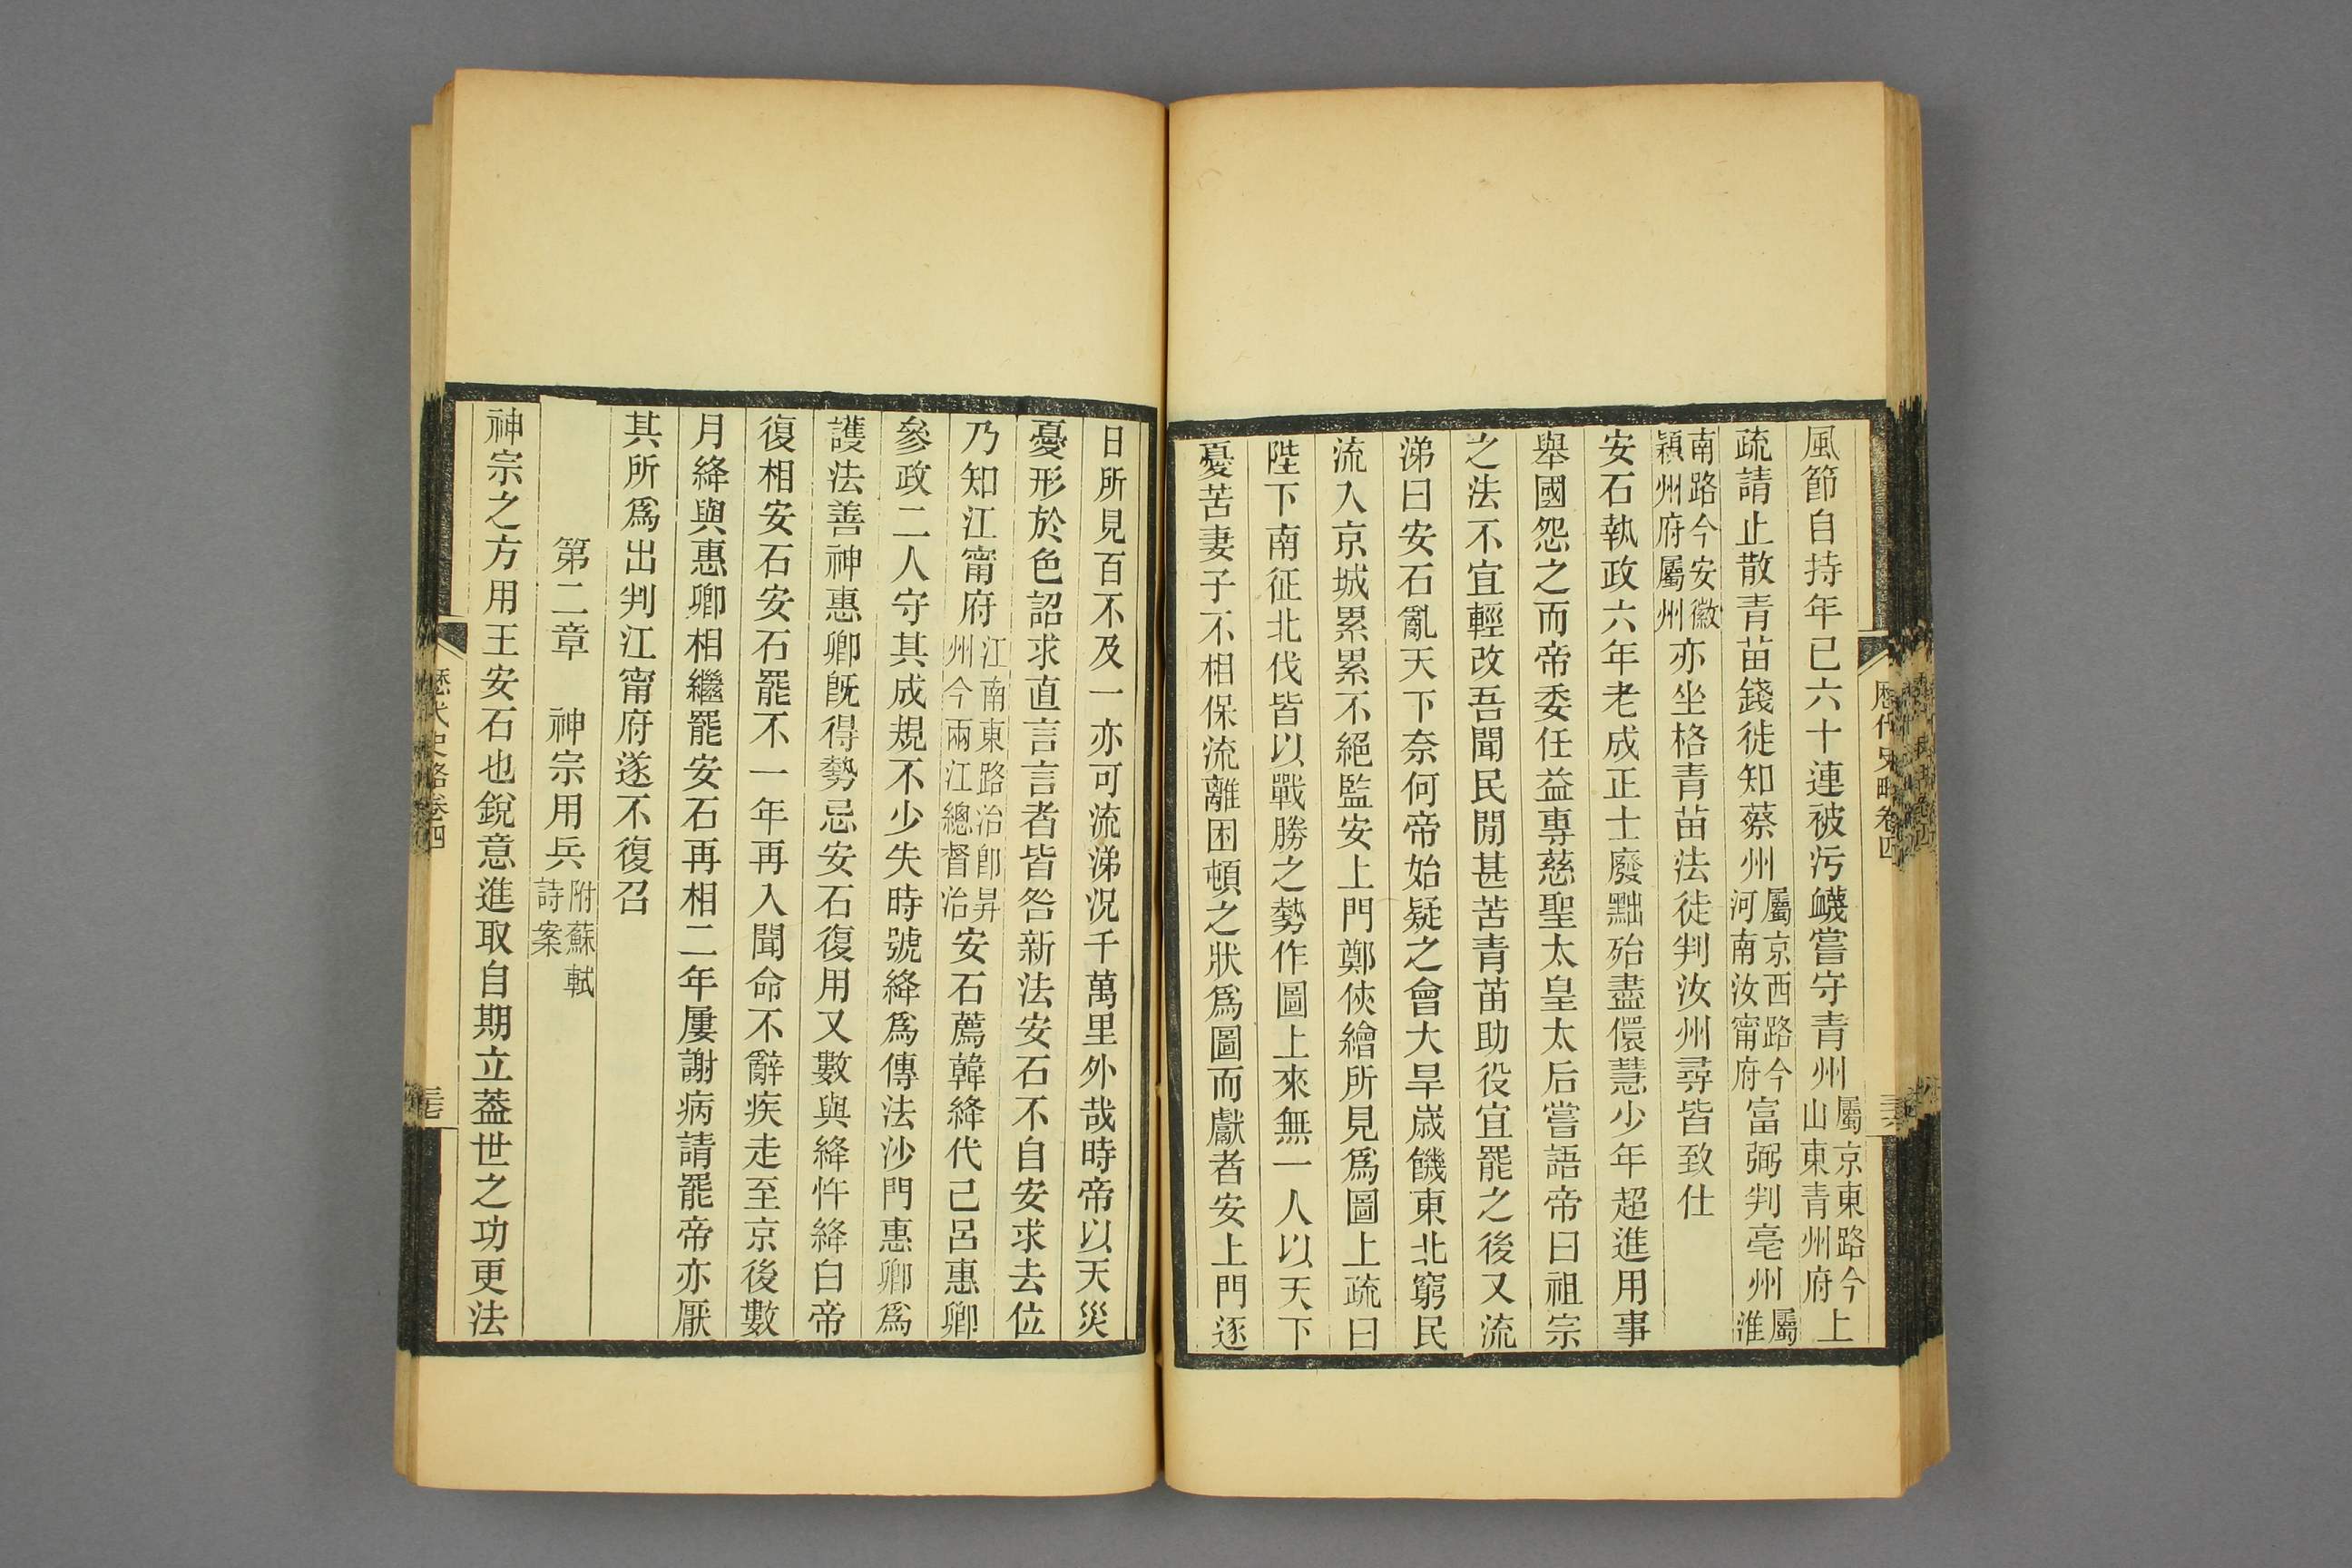 風節自持年已六十連被污衊嘗守青州屬京東路今山東青州府上
疏請止散青苗錢徙知蔡州屬京西路今河南汝甯府富弼判亳州屬淮
南路今安徽潁州府屬州亦坐格青苗法徒判汝州尋皆致仕
安石執政六年老成正士廢黜殆盡儇慧少年超進用事
舉國怨之而帝委任益專慈聖太皇太后嘗語帝曰祖宗
之法不宜輕改吾聞民閒甚苦青苗助役宜罷之後又流
涕曰安石亂天下奈何帝始疑之會大旱歲饑東北窮民
流入京城累累不絕監安上門鄭俠繪所見爲圖上疏曰
陛下南征北伐皆以戰勝之勢作圖上來無一人以天下
憂苦妻子不相保流離困頓之狀爲圖而獻者安上門逐
歷代史略卷四
日所見百不及一亦可流涕況千萬里外哉時帝以天災
憂形於色詔求直言言者皆咎新法安石不自安求去位
乃知江甯府江南東路治卽昇州今兩江總督治安石薦韓絳代己呂惠卿
參政二人守其成規不少失時號絳爲傳法沙門惠卿爲
護法善神惠卿旣得勢忌安石復用又數與絳忤絳白帝
復相安石安石罷不一年再入聞命不辭疾走至京後數
月絳與惠卿相繼罷安石再相二年屢謝病請罷帝亦厭
其所爲出判江甯府遂不復召
第二章　神宗用兵附蘇軾詩案
神宗之方用王安石也銳意進取自期立葢世之功更法
歷代史略卷四